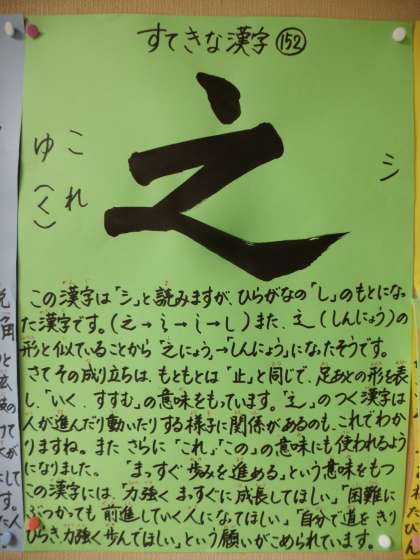 すてきな漢字 152
之
シ
こ れ
ゆ(く)
この漢字は「シ」と読みますが、ひらがなの「し」のもとになっ
た漢字です。(之→
→し)また、辶(しんにょう)の
形と似ていることから「之にょう」→「しんにょう」になったそうです。
さてその成り立ちは、もともとは「止」と同じで、足あとの形を表
し、「いく、すすむ」の意味をもっています。「之」のつく漢字は
人が進んだり動いたりする様子に関係があるのも、これでわか
りますね。またさらに「これ」「この」の意味にも使われるよう
になりました。「まっすぐ歩みを進める」という意味をもつ
この漢字には、「力強くまっすぐに成長してほしい」「困難に
ぶつかっても前進していく人になってほしい」「自分で道をきり
ひらき力強く歩んでほしい」という願いがこめられています。